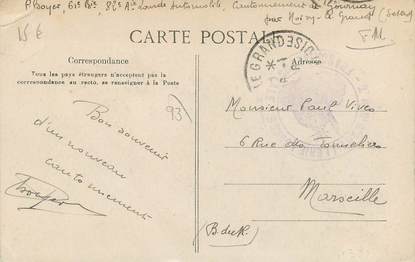 P Boyer, 61e Bie 82e Aie Lourde Automobile, Cantonnement de Gournay
par Noisy-le-Grand (
15 €
F.M.
CARTE POSTALE
LE GRAND (SEINE
Correspondance
Adresse
Tous les pays étrangers n'acceptent pas la
correspondance au recto, se renseigner à la Poste
93
Bon souvenir
d'un nouveau
cantonnement
Monsieur Paul Vives
6 Rue des Tonneliers
Marseille
(B. du R.)